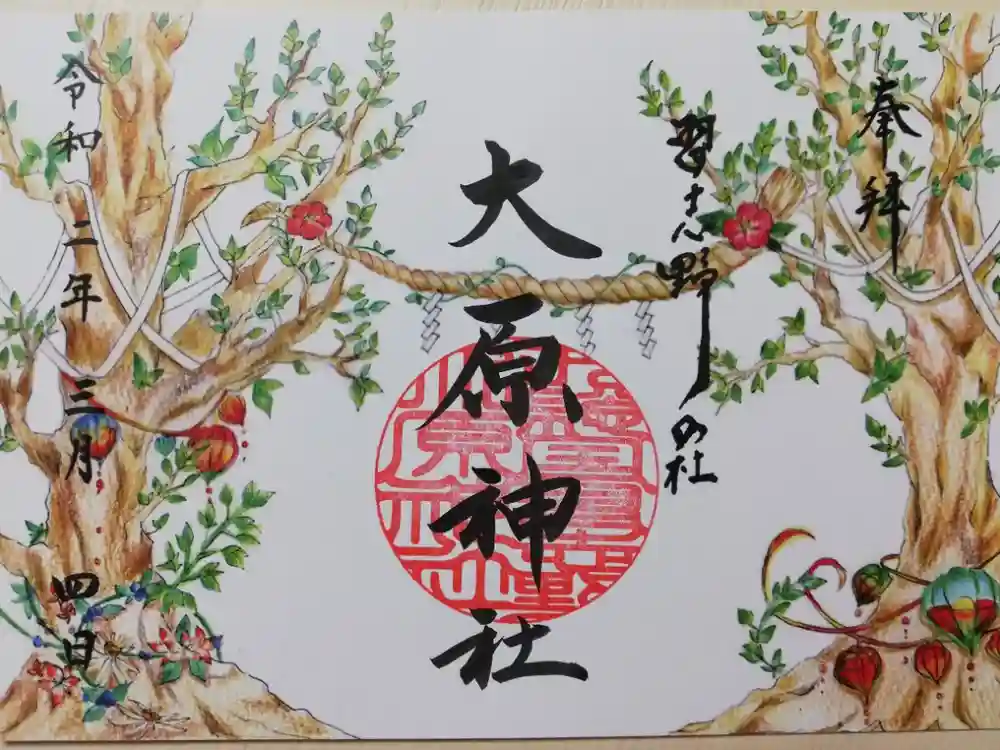 奉拝
習志野の杜
大原神社
令和二年三月四日